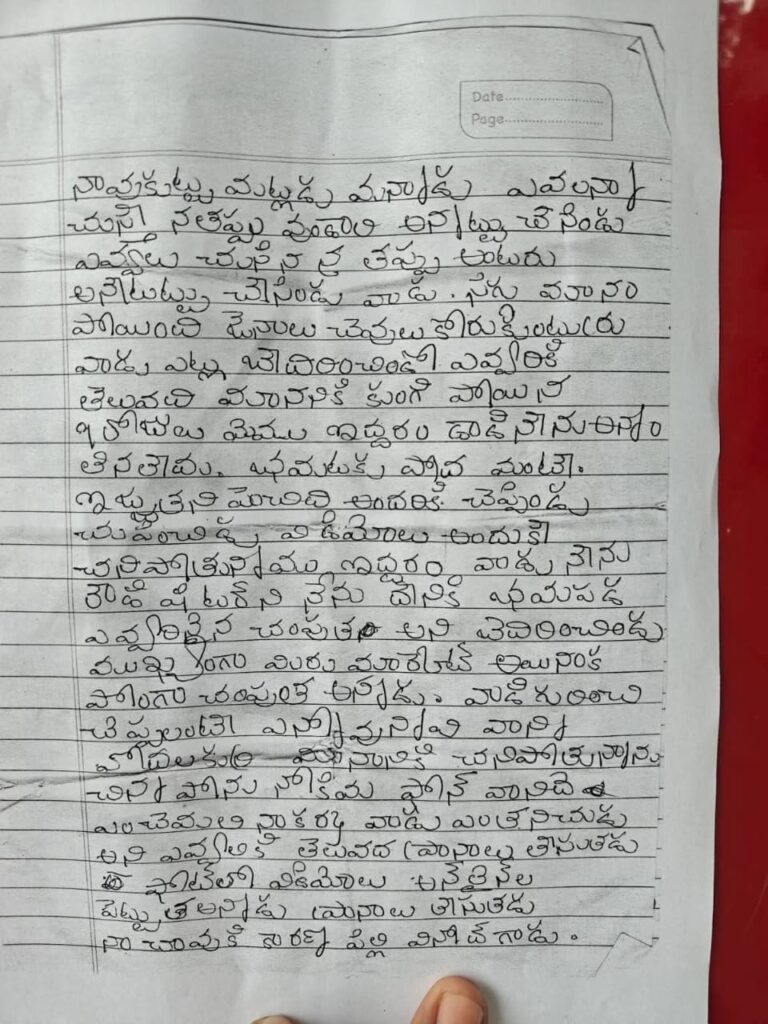 Date
Page
నావుకుట్టు మట్లడు మన్నాడు ఎవలన్నా
చుస్తే నతప్పు వుండాలి అన్నట్టు చేసిండు
ఎవ్వలు చుసిన న తప్పు అంటరు
అనేటట్టు చేసిండు వాడు. సిగ్గు మానం
పోయింది జనాలు చెవులు కోరుక్కుంటుrు
వాడు ఎట్లు బెదిరించిండో ఎవ్వరికి
తెలువది మానానికి కుంగి పోయిన
9 రోజులు మేము ఇద్దరం డాడి నేను అన్నం
తినలేదు. భయటకు పోద మంటే.
ఇజ్జతని పెంచిది అందరికి చెప్పిండు
చుపించిడు విడియోలు అందుకే
చనిపోతున్నాము ఇద్దరం వాడు నేను
రౌడి షిటర్ ని నేను దేనికి భయపడ
ఎవ్వరినైన చంపుత అని బెదిరించిండు
ముఖ్యంగా మిరు మారేజ్ అయినాక
పోంగా చంపుత అన్నాడు. వాడి గురించి
చెప్పలంటే ఎన్నోవున్నవి వాన్ని
వోదలకుrి మానానికి చనిపోతున్నాను
చిన్న పోను నోకియ ఫోన్ వానిదే
ఎంచెమలి నాకర్థ వాడు ఎంతనిచుడు
అని ఎవ్వలికి తెలువద ప్రానాలు తీసుతడు
ఫోటోలో విడియోలు
పెట్టుత అన్నాడు ప్రానాలు తీసుతడు
నా చావుకి కారణ పిల్లి వినోద్ గాడు.